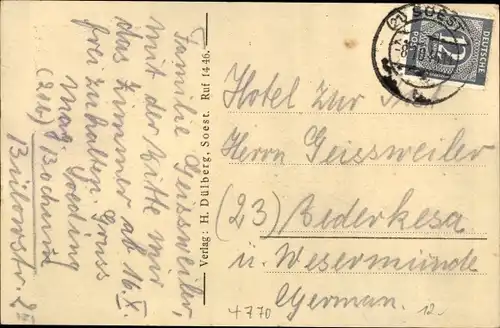 Familie Geissweiler,
mit der Bitte mir
das Zimmer ab 16.X.
frei zuhalten. Gruss
Bochum
Bülowstr.
Verlag: H. Dülberg, Soest. Ruf 1446.
(21) SOEST
DEUTSCHE
POST
12
Hotel zur
Herrn Geissweiler
(23) Bederkesa
ü. Wesermünde
German.
4770
12